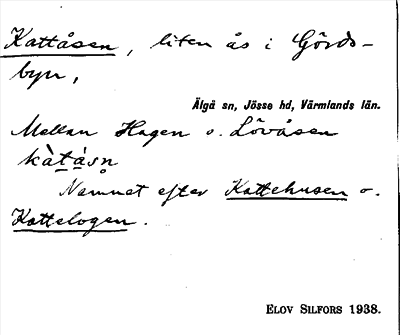 Kattåsen, liten ås i Gårds-
byn,
Älgå sn, Jösse hd, Värmlands län.
Mellan Hagen o. Lövåsen
kàtásn
Namnet efter Kattehusen o.
Kattelogen.
ELOV SILFORS 1938.